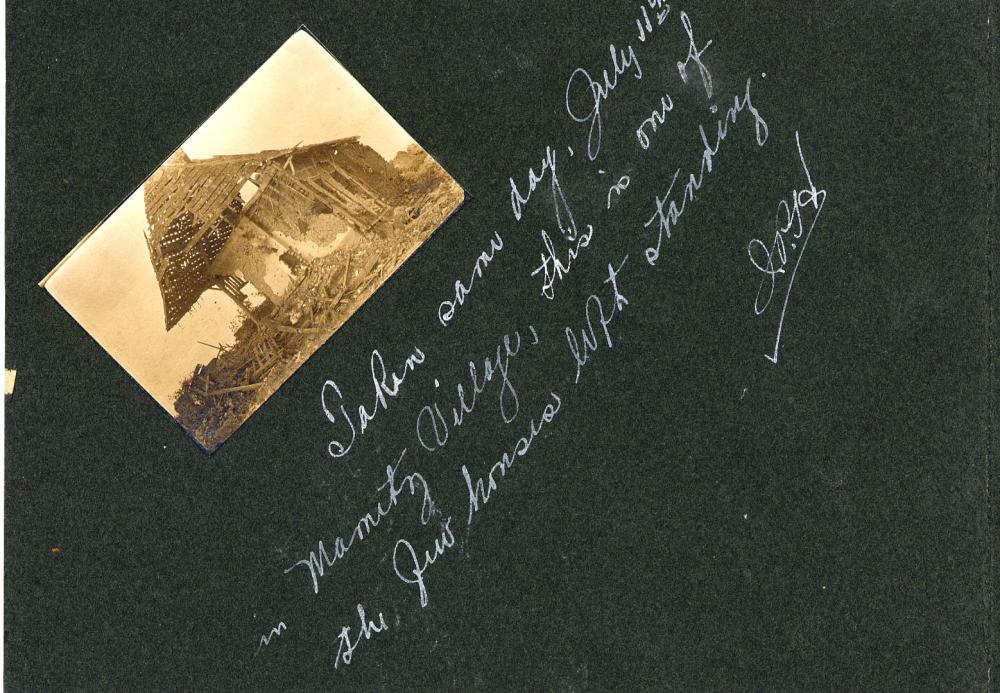 Taken same day, July 11th
in Mamitz Village, this is one of
the few houses left standing.